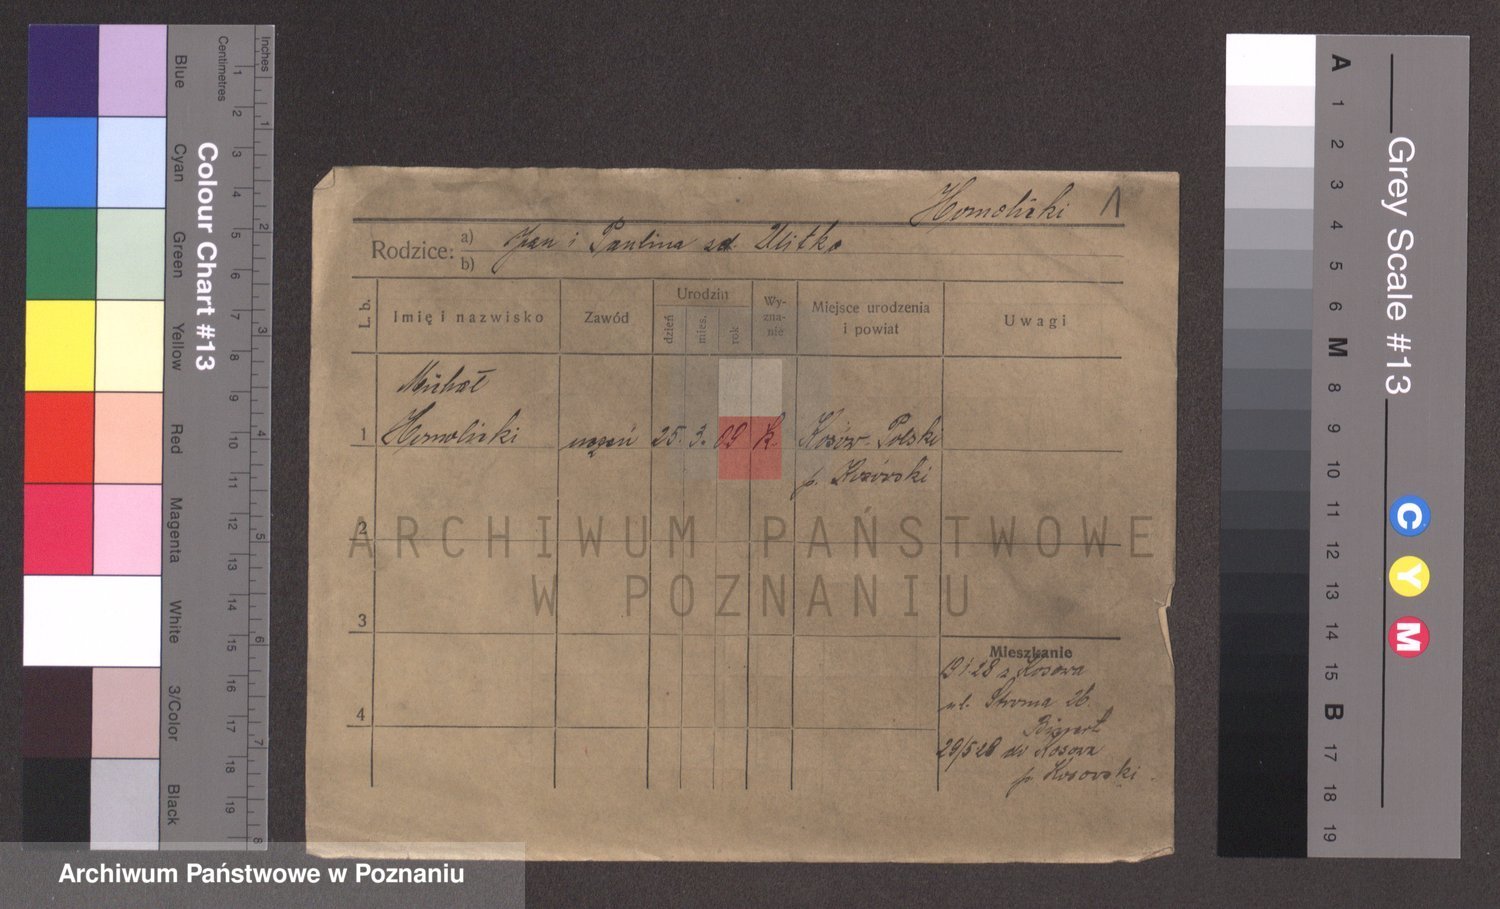 Inches
Centimetres
1 2 3 4 5 6 7 8
1 2 3 4 5 6 7 8 9 10 11 12 13 14 15 16 17 18 19
Colour Chart #13
Blue
Cyan
Green
Yellow
Red
Magenta
White
3/Color
Black
Homolicki 1
Rodzice: a) Jan i Paulina zd. Ulitko
b)
L. b.
Imię i nazwisko
Zawód
Urodzin
dzień
mies.
rok
Wy-
zna-
nie
Miejsce urodzenia
i powiat
Uwagi
Michał
1 Homolicki uczeń 25. 3. 09 K. Kosów Polski
p. Kosowski
2
3
4
Mieszkanie
19/1 28 z Kosowa
ul. Stroma 26
29/5 28 do Kosowa
p. Kosowski
ARCHIWUM PAŃSTWOWE
W POZNANIU
Grey Scale #13
A 1 2 3 4 5 6 M 8 9 10 11 12 13 14 15 B 17 18 19
C
Y
M
Archiwum Państwowe w Poznaniu